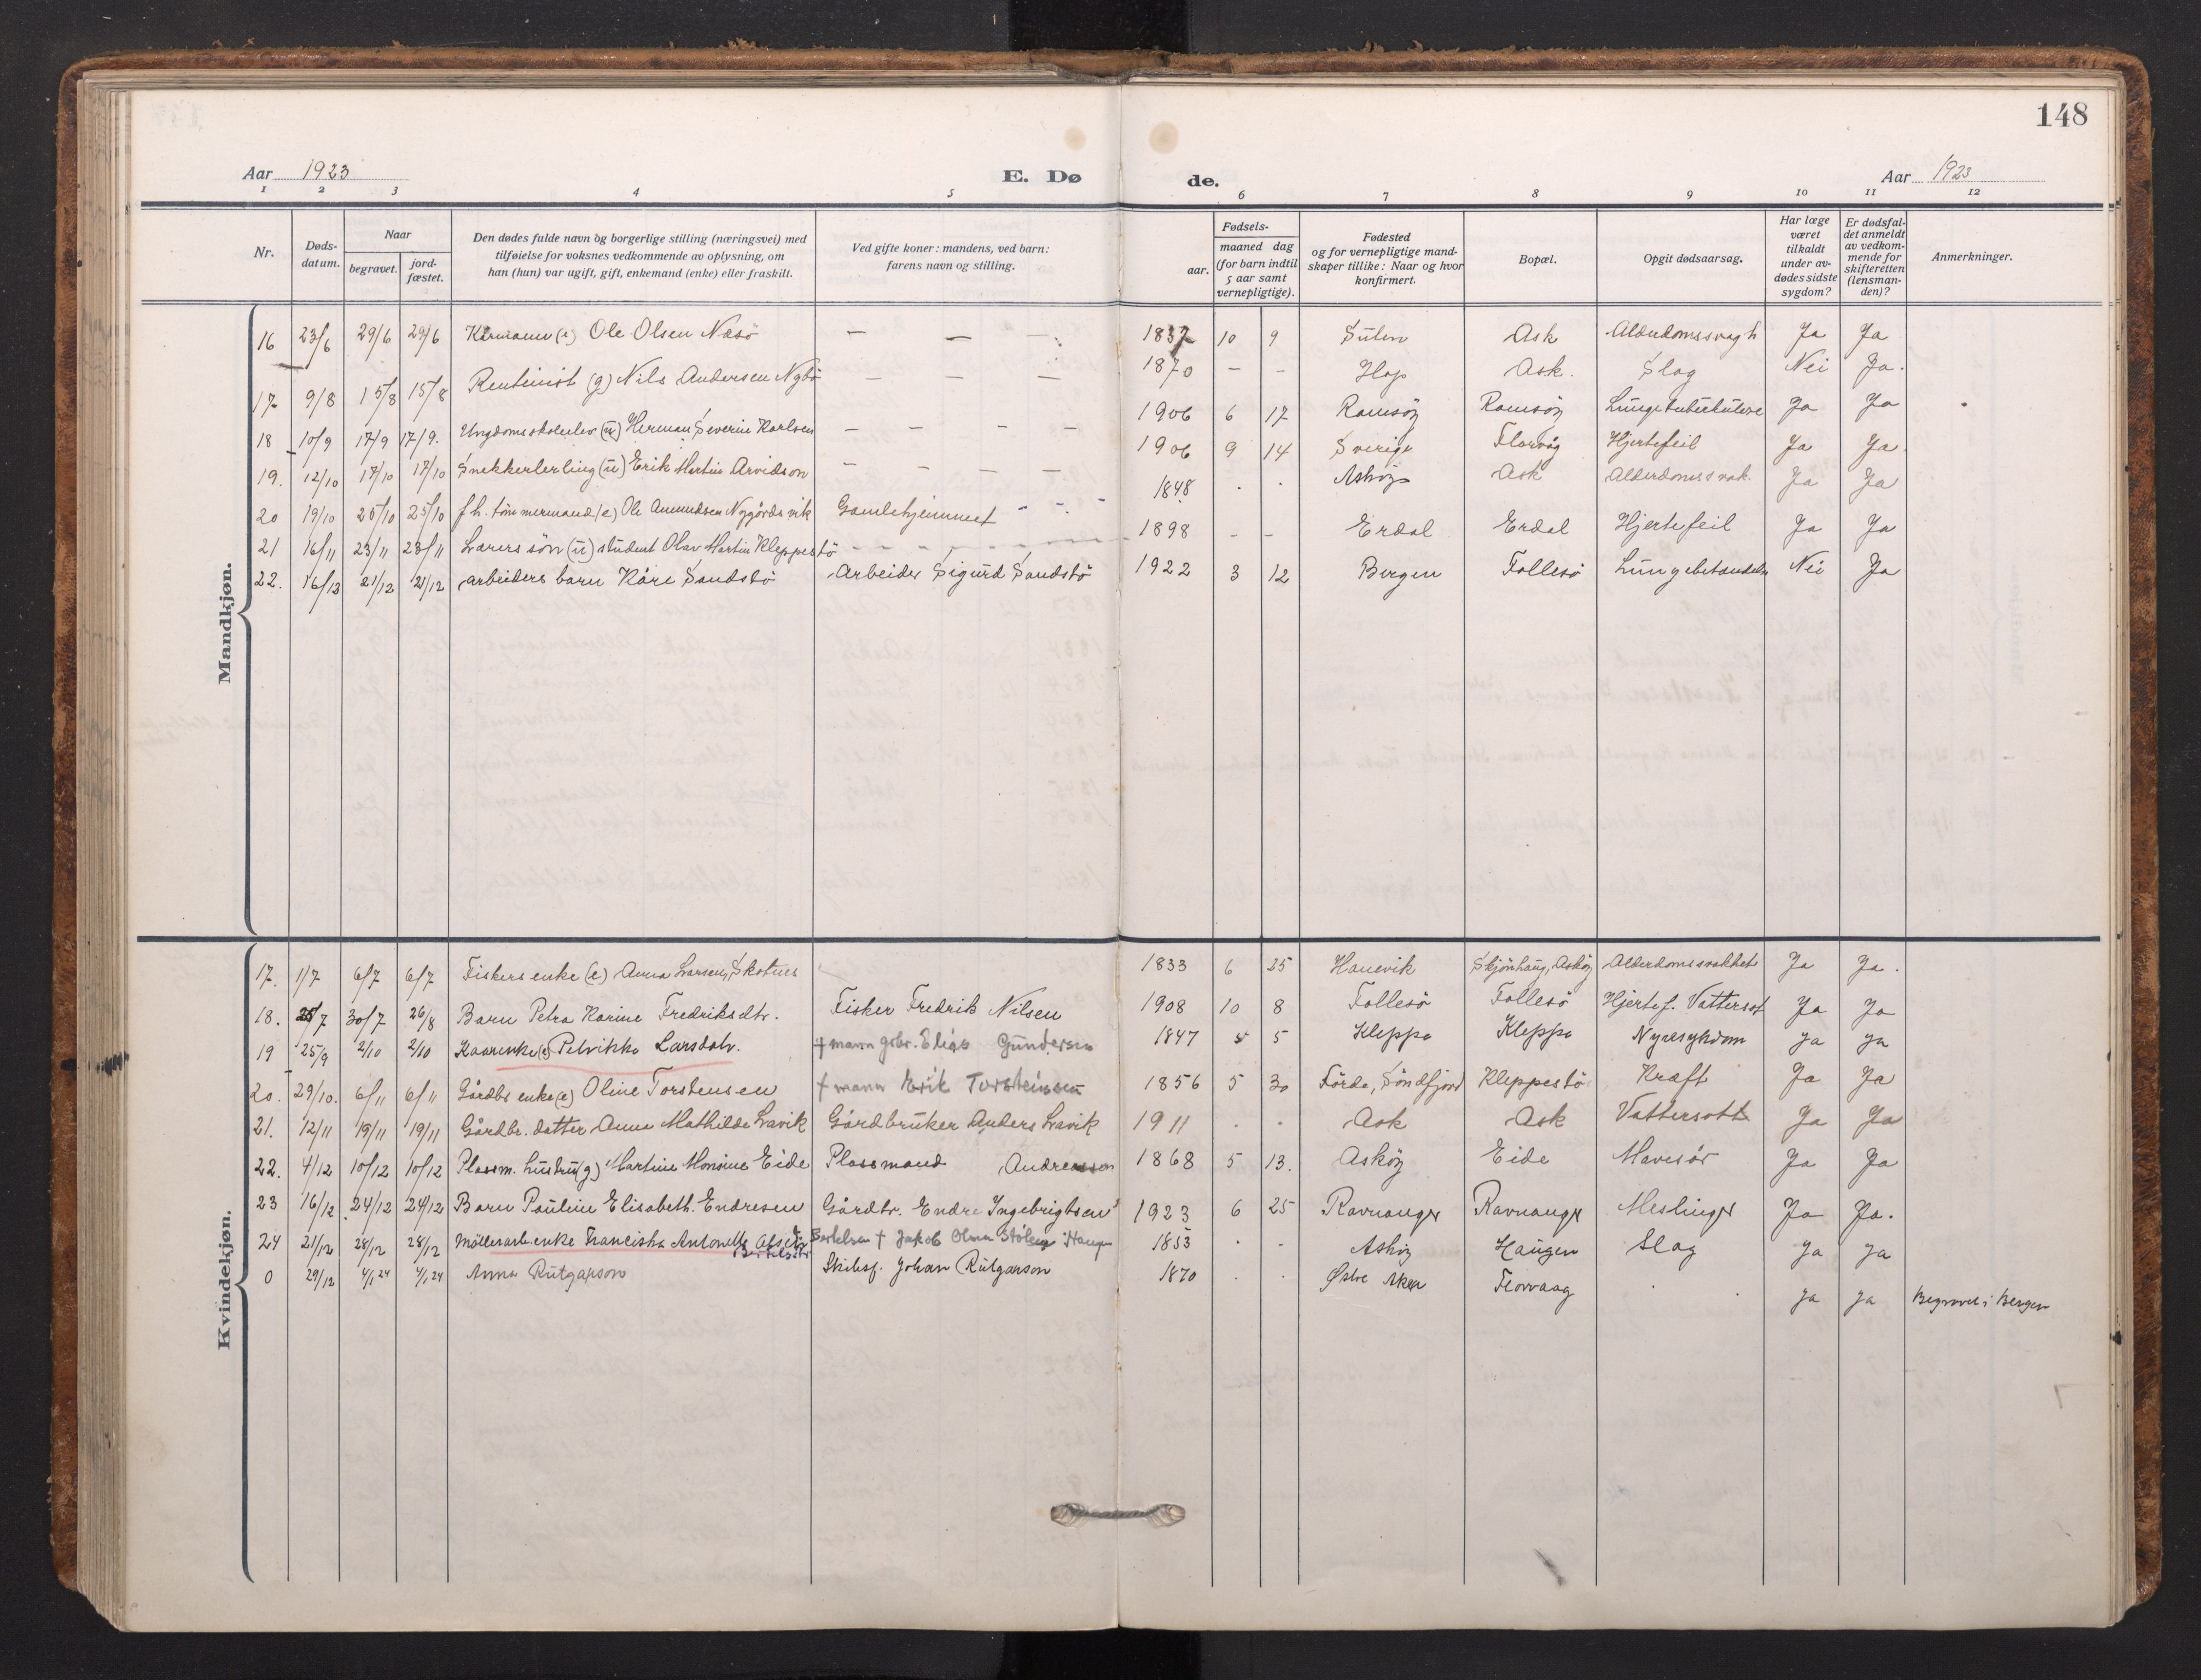 148
Aar 1923 E. Dø de. Aar 1923
1 2 3 4 5 6 7 8 9 10 11 12
Nr.
Døds-datum.
Naar
begravet.
jord-fæstet.
Den dødes fulde navn og borgerlige stilling (næringsvei) med
tilføielse for voksnes vedkommende av oplysning, om
han (hun) var ugift, gift, enkemand (enke) eller fraskilt.
Ved gifte koner: mandens, ved barn:
farens navn og stilling.
Fødsels-
aar.
maaned dag
(for barn indtil
5 aar samt
vernepligtige).
Fødested
og for vernepligtige mand-
skaper tillike: Naar og hvor
konfirmert.
Bopæl.
Opgit dødsaarsag.
Har læge
været
tilkaldt
under av-
dødes sidste
sygdom?
Er dødsfal-
det anmeldt
av vedkom-
mende for
skifteretten
(lensman-
den)?
Anmerkninger.
Mandkjøn.
16 23/6 29/6 29/6 Kårmann (e) Ole Olsen Næsö — — — 1837 10 9 Sulen Ask Alderdomssvagh Ja Ja
17 9/8 15/8 15/8 Rentenist (g) Nils Andersen Nybö — — — 1870 — — Hop Ask. Slag Nei Ja.
18 10/9 17/9 17/9. Ungdomsskoleelev (u) Herman Severin Karlsen — — — — 1906 6 17 Ramsöy Ramsöy Lungetuberkulose Ja Ja
19. 12/10 17/10 17/10 Snekkerlerling (u) Erik Martin Arvidson — — — — 1906 9 14 Sverige Florvåg Hjertefeil Ja Ja.
20 19/10 25/10 25/10 fh. tömmermand (e) Ole Amundsen Nygårdsvik Gamlehjemmet 1848 . . Asköy Ask Alderdomssvak. Ja Ja
21 16/11 23/11 23/11 Lærers sön (u) student Olav Martin Kleppestö 1898 - - Erdal Erdal Hjertefeil Ja Ja
22. 16/12 21/12 21/12 arbeiders barn Kåre Sandstö Arbeider Sigurd Sandstö 1922 3 12 Bergen Follesö Lungebetændelse Nei Ja
Kvindekjøn.
17. 1/7 6/7 6/7 Fiskers enke (e) Anna Larsen, Skotnes 1833 6 25 Hanevik Skjönhaug, Asköy Alderdomssvakhet Ja Ja.
18. 25/7 30/7 26/8 Barn Petra Karine Fredriksdtr. Fisker Fredrik Nilsen 1908 10 8 Follesö Follesö Hjertef. Vattersot Ja Ja
19 25/9 2/10 2/10 Kaarenke (e) Petrikke Larsdotr. + mann gbr. Elias Gundersen 1847 5 5 Kleppe Kleppe Nyresykdom Ja Ja
20. 29/10. 6/11 6/11 Gårdbr enke (e) Oline Torstensen + mann Erik Torsteinsen 1856 5 30 Förde, Söndfjord Kleppestö Kræft Ja Ja
21. 12/11 19/11 19/11 Gårdbr. datter Anna Mathilde Lavik Gårdbruker Anders Lavik 1911 . . Ask Ask Vattersott Ja Ja
22. 4/12 10/12 10/12 Plassm. hustru (g) Martine Monsine Eide Plassmand Andreassen 1868 5 13. Asköy Eide Mavesår Ja Ja
23 16/12 24/12 24/12 Barn Pauline Elisabeth. Endresen Gårdbr. Endre Ingebrigtsen 1923 6 25 Ravnanger Ravnanger Meslinger Ja Ja.
24 21/12 28/12 28/12 Möllerarb enke Franciska Antonette Bertelsdtr Bertelsen + Jakob Olsen Haugen 1853 . . Asköy Haugen Slag Ja Ja
0 29/12 4/1 24 4/1 24 Anna Rutgarson Skibsf. Johan Rutgarson 1870 . . Østre Aker Florvaag . . Ja Ja Begravet i Bergen